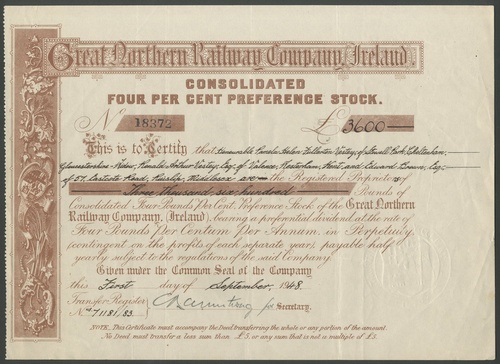 Great Northern Railway Company, (Ireland)
CONSOLIDATED
FOUR PER CENT PREFERENCE STOCK.
No 18372 £3600
This is to Certify that Honourable Pamela Helen Fullerton Vestey, of Stowell Park, Cheltenham,
Gloucestershire, Widow, Ronald Arthur Vestey, Esq. of Valence, Westerham, Kent, and Edward Brown, Esq.
of 57, Eastcote Road, Ruislip, Middlesex, are the Registered Proprietors
of Three thousand, six hundred Pounds of
Consolidated Four Pounds Per Cent. Preference Stock of the Great Northern
Railway Company, (Ireland), bearing a preferential dividend at the rate of
Four Pounds Per Centum Per Annum, in Perpetuity,
(contingent on the profits of each separate year), payable half
yearly subject to the regulations of the said Company.
Given under the Common Seal of the Company
this First day of September, 1948.
Transfer Register for Secretary.
No 71181/83.
NOTE. This Certificate must accompany the Deed transferring the whole or any portion of the amount.
No Deed must transfer a less sum than £5, or any sum that is not a multiple of £5.